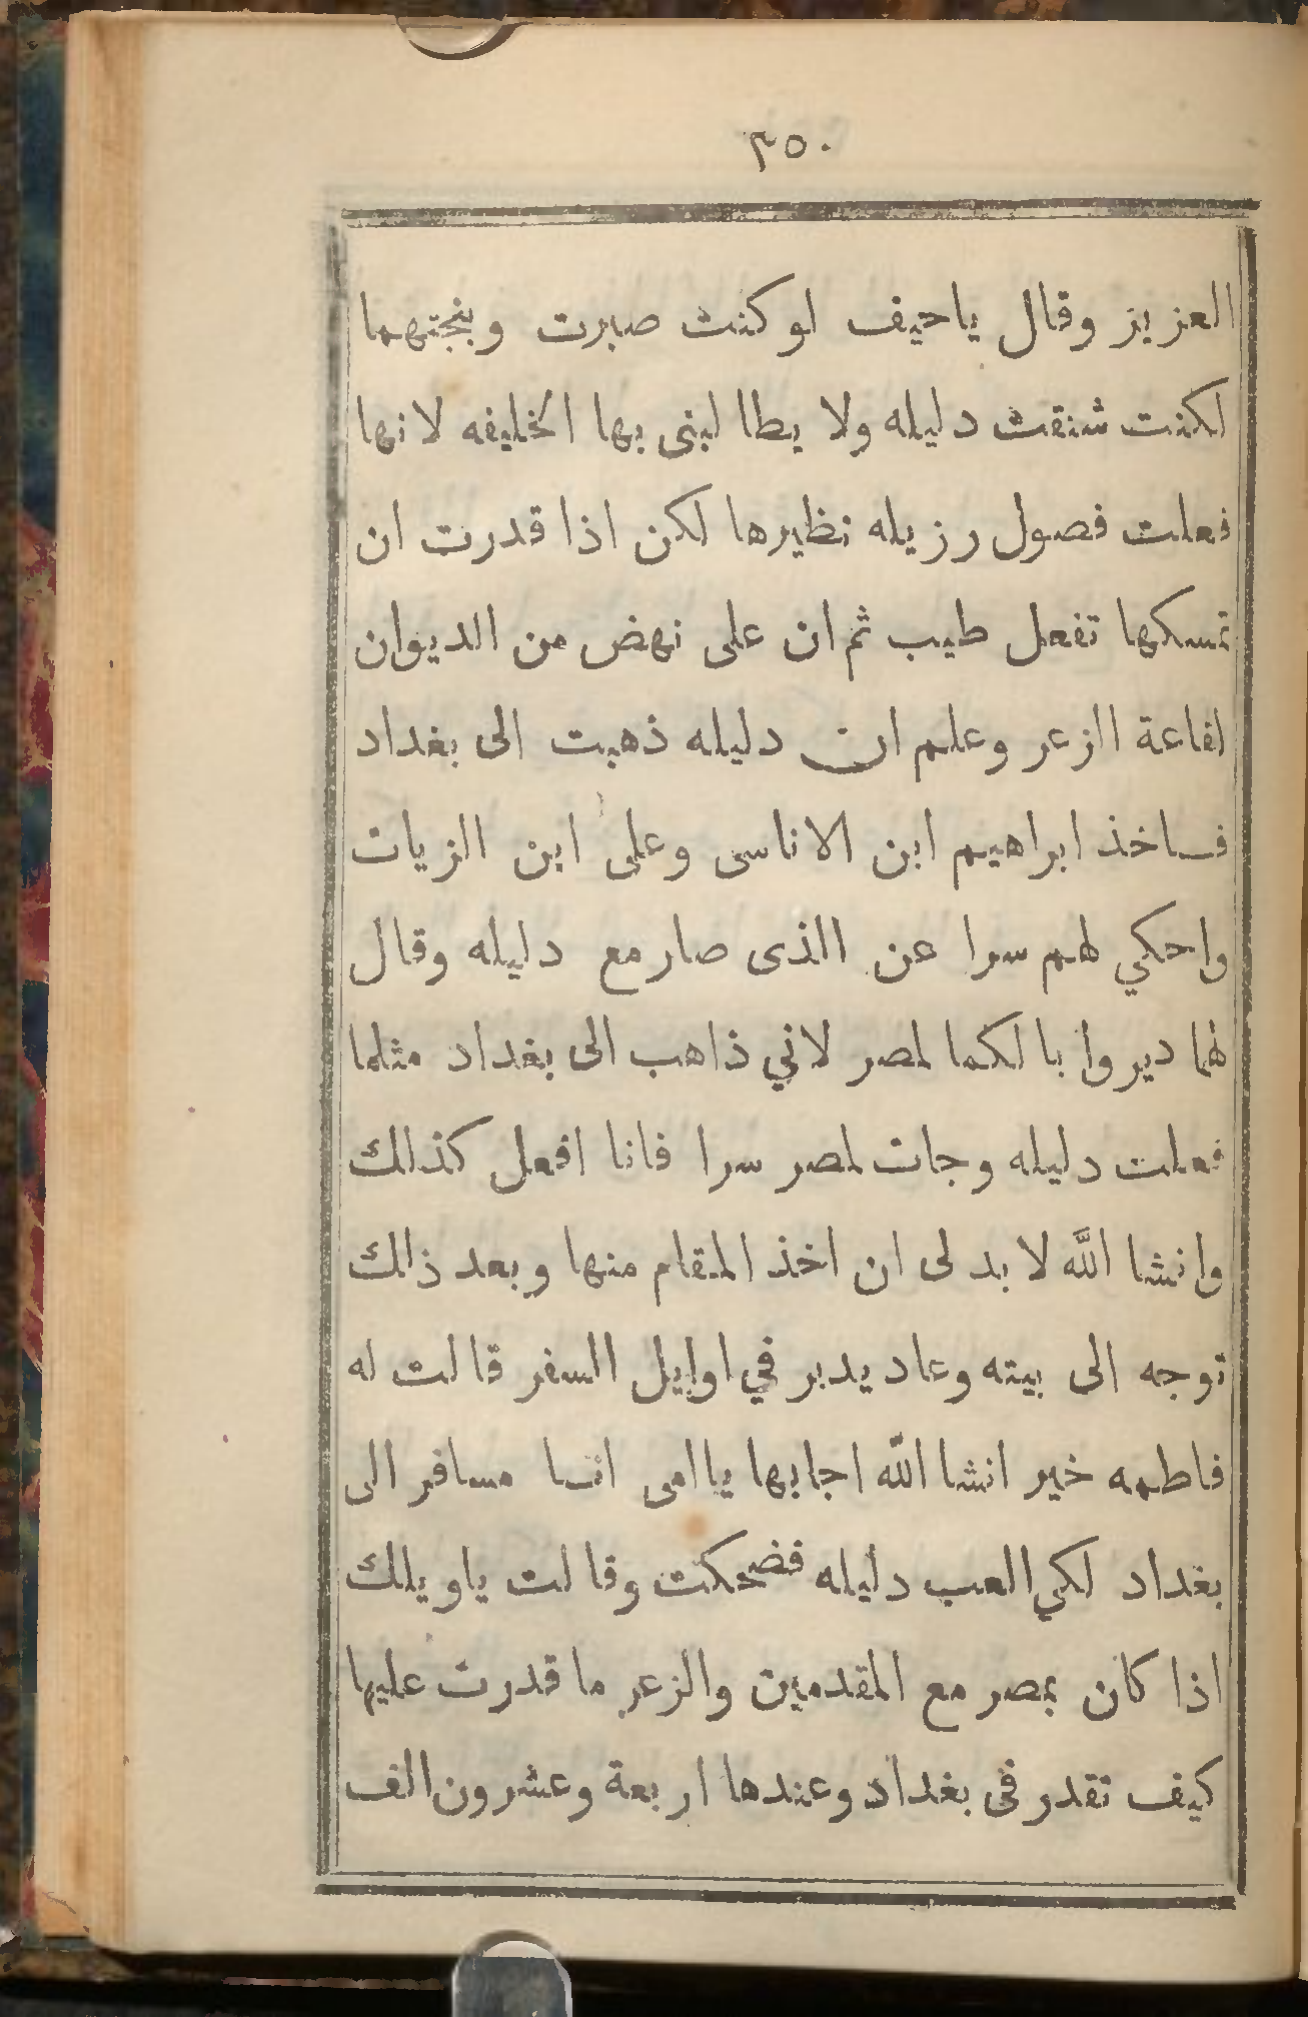 ٣٥٠
العزيز وقال ياحيف لو كنت صبرت وبنجتهما
لكنت شنقت دليله ولا يطا لبنى بها الخليفه لانها
فعلت فصول رزيله نظيرها لكن اذا قدرت ان
تمسكها تفعل طيب ثم ان على نهض من الديوان
لقاعة الزعر وعلم ان دليله ذهبت الى بغداد
فساخذ ابراهيم ابن الاناسى وعلى ابن الزيات
واحكي لهم سرا عن الذى صار مع دليله وقال
لهما ديروا بالكما لمصر لاني ذاهب الى بغداد مثلما
فعلت دليله وجات لمصر سرا فانا افعل كذلك
وانشا الله لا بد لى ان اخذ المقام منها وبعد ذلك
توجه الى بيته وعاد يدبر في اوايل السفر قالت له
فاطمه خير انشا الله اجابها ياامى انا مسافر الى
بغداد لكي العب دليله فضحكت وقالت ياويلك
اذا كان بمصر مع المقدمين والزعر ما قدرت عليها
كيف تقدر فى بغداد وعندها اربعة وعشرون الف